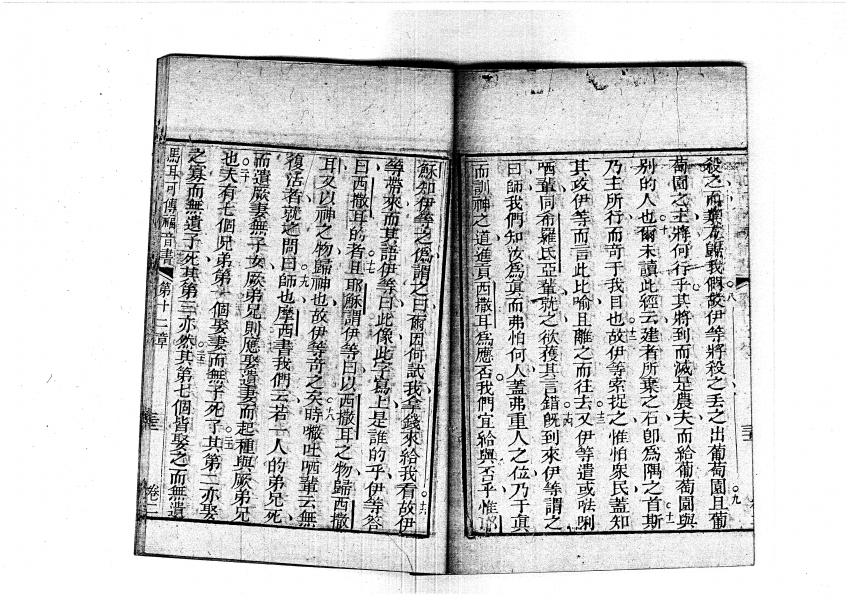 殺之而業歸我們故伊等將殺之丟之出葡萄園且葡
萄園之主將何行乎其將到而滅是農夫而給葡萄園與
別的人也爾未讀此經云建者所棄之石即為隅之首斯
乃主所行而奇于我目也故伊等索捉之惟怕眾民蓋知
其攻伊等而言此比喻且離之而往去又伊等遣或𠵽唎
哂輩同希羅氐亞輩就之欲獲其言錯既到來伊等謂之
曰師我們知汝為真而弗怕何人蓋弗重人之位乃于真
而訓神之道進貢西撒耳為應否我們宜給與否乎惟耶
穌知伊等之偽謂之曰爾因何試我拿錢來給我看故伊
等帶來而其語伊等曰此像此字寫上是誰的乎伊等答
曰西撒耳的者且耶穌謂伊等曰以西撒耳之物歸西撒
耳又以神之物歸神也故伊等奇之矣時𠵽吐哂輩云無
復活者就之問曰師也摩西書我們云若一人的弟兄死
而遺厥妻無子女厥弟兄則應娶遺妻而起種與厥弟兄
也夫有七個兄弟第一個娶妻而無子死了其第二亦娶
之寡而無遺子死其第三亦然其第七個皆娶之而無遺
馬耳可傳福音書 第十二章 卷二